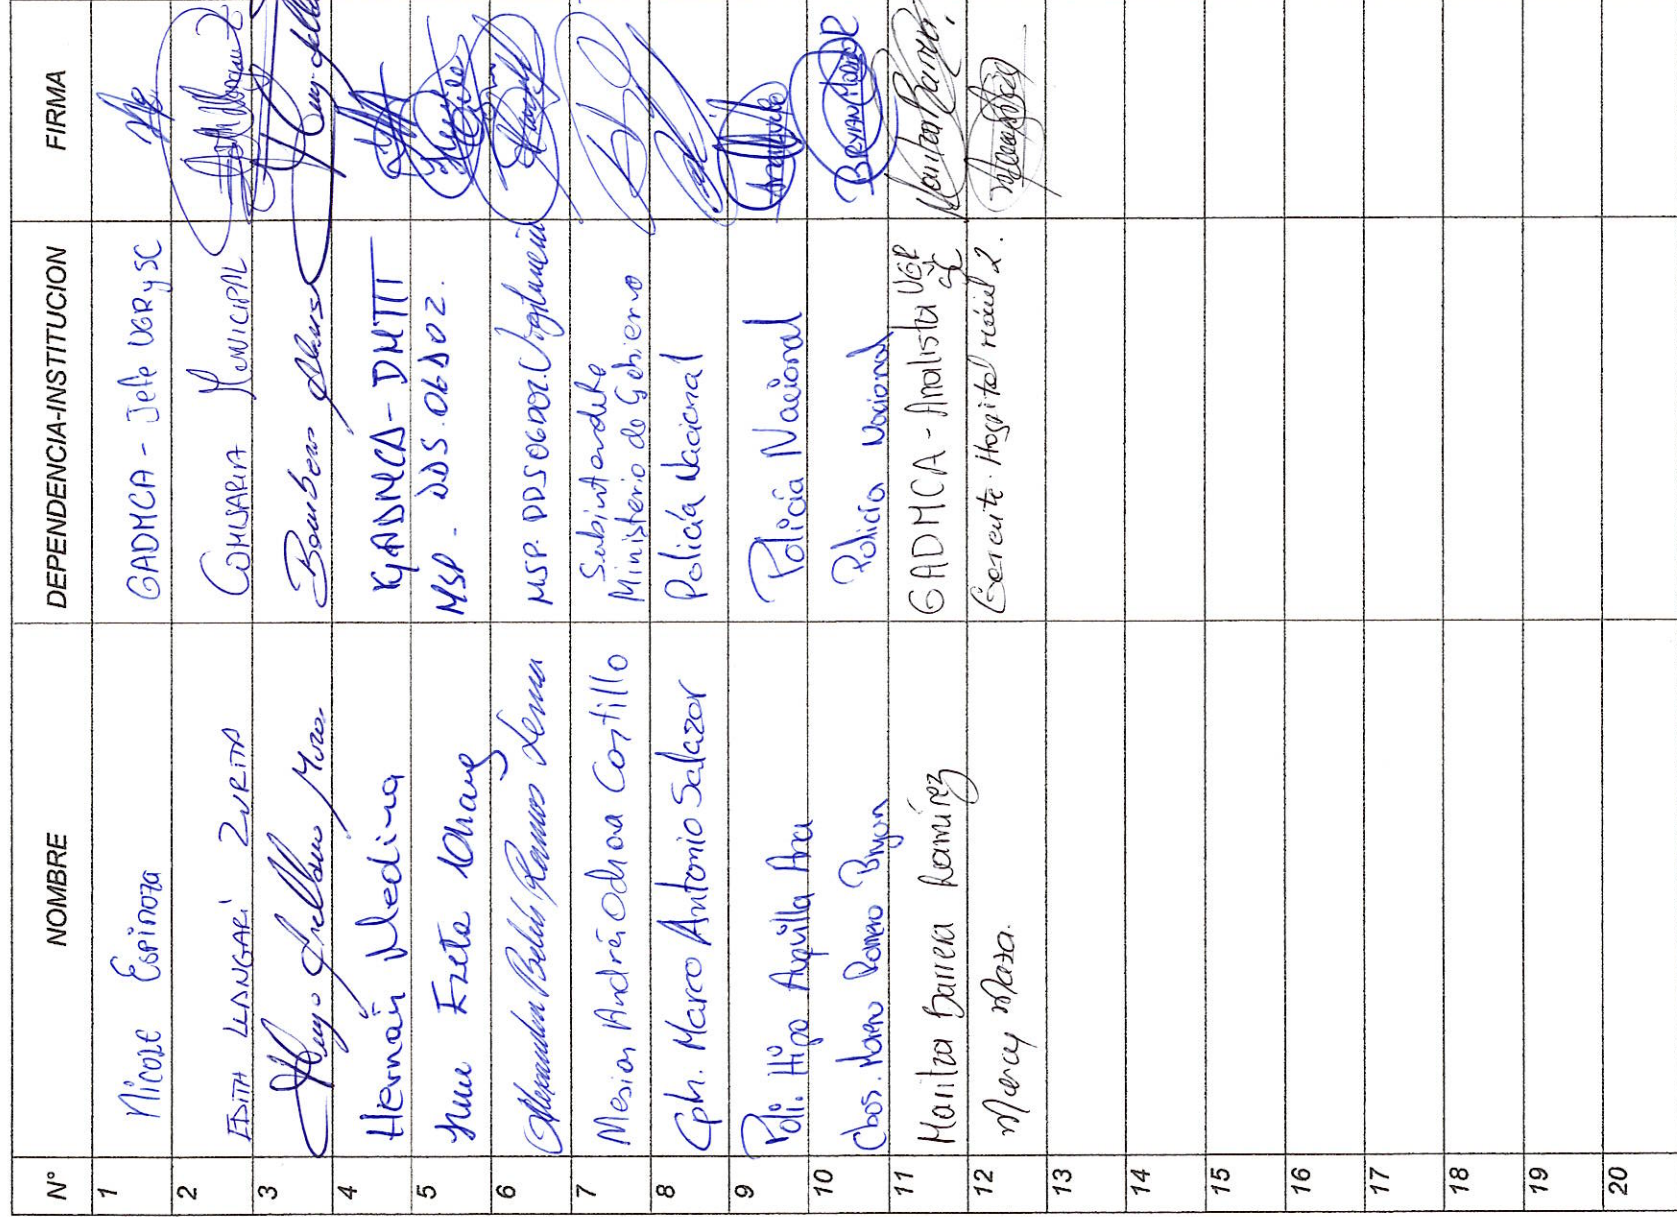 N° NOMBRE DEPENDENCIA-INSTITUCION FIRMA
1 Nicole Espinoza GADMCA - Jefe UGR y SC
2 EDITH LLANGARÍ ZURITA COMISARIA MUNICIPAL
3 Hugo Arellano Bombero
4 Hernán Medina GADMCA - DMTTT
5 MSP - DDS.06D02.
6 Alexandra Belén Ramos Lema MSP. DDS06D02. Vigilancia
7 Mesias Andrés Ochoa Castillo Subintendente
Ministerio de Gobierno
8 Cptn. Marco Antonio Salazar Policía Nacional
9 Poli. Hipo Auquilla Ana Policía Nacional
10 Cbos. Moreno Romero Bryan Policía Nacional
11 Maritza Barrera Ramírez GADMCA - Analista UGR Maritza Barrera
12 Mercy Maza. Gerente Hospital
13
14
15
16
17
18
19
20